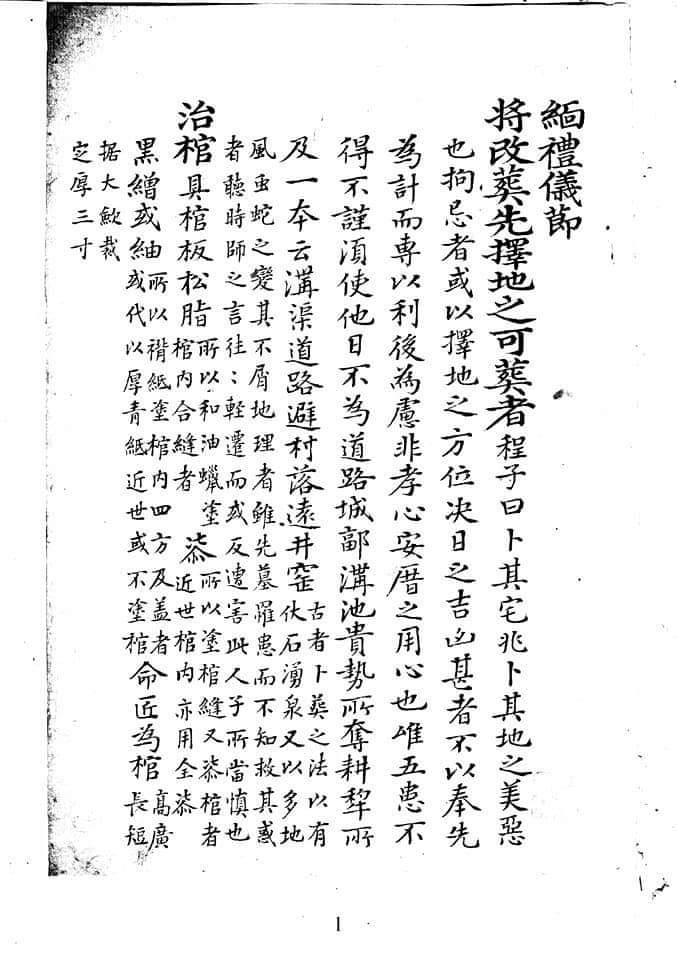 緬禮儀節
将改葬先擇地之可葬者程子曰卜其宅兆卜其地之美惡
也拘忌者或以擇地之方位决日之吉凶甚者不以奉先
為計而専以利後為慮非孝心安厝之用心也唯五患不
得不謹湏使他日不為道路城郭溝池貴勢所奪耕犂所
及一本云溝渠道路避村落遠井窑古者卜葬之法以有
伏石湧泉又以多地
風虫蛇之變其不屑地理者雖先墓罹患而不知救其惑
者聽時師之言往〻輕遷而或反遭害此人子所當慎也
治棺具棺板松脂所以和油蠟塗
棺内合縫者
柒所以塗棺縫又柒棺者
近世棺内亦用全柒
黒繒或紬所以褙紙塗棺内四方及盖者
或代以厚青紙近世或不塗棺
命匠為棺高廣
長短
据大歛裁
定厚三寸
1